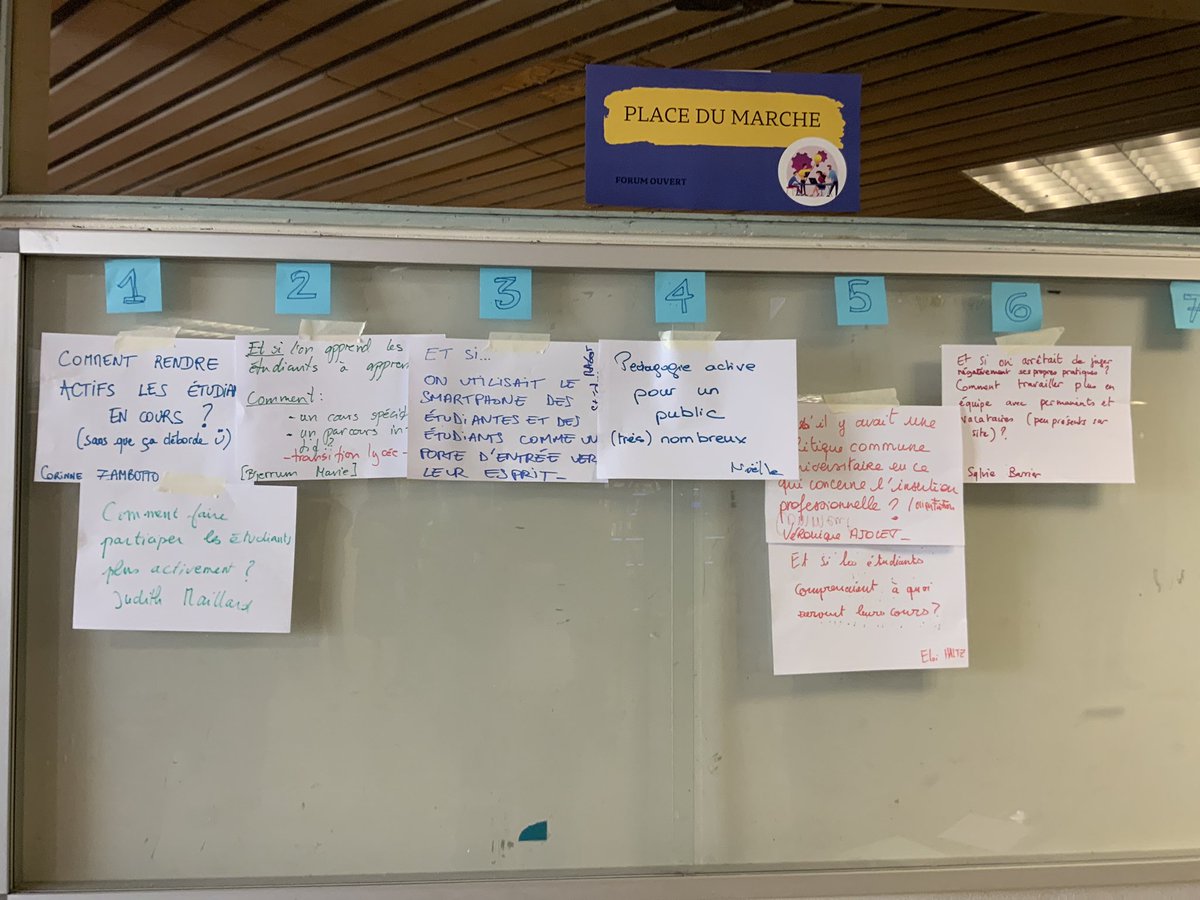 PLACE DU MARCHE
FORUM OUVERT
1
2
3
4
5
6
7
COMMENT RENDRE
ACTIFS LES ÉTUDIA
EN COURS ?
(sans que ça déborde ü)
CORINNE ZAMBOTTO
Comment faire
participer les étudiants
plus activement ?
Judith Maillard
Et si l'on apprend les
étudiants à appren
Comment :
- un cours spécif
- un parcours in
- transition lycée -
[Bjerrum Marie]
ET SI...
ON UTILISAIT LE
SMARTPHONE DES
ÉTUDIANTES ET DES
ÉTUDIANTS COMME UN
PORTE D'ENTRÉE VER
LEUR ESPRIT_
Pédagogie active
pour un
public
(très) nombreux
Noëlle
s'il y avait une
litique commune
iversitaire en ce
qui concerne l'insertion
professionnelle ? / orientation
Véronique AJOLET_
Et si les étudiants
comprenaient à quoi
servent leurs cours ?
Eloi HALTZ
Et si on arrêtait de juger
négativement ses propres pratiques ?
Comment travailler plus en
équipe avec permanents et
vacataires (peu présents sur
site) ?
Sylvie Barrier